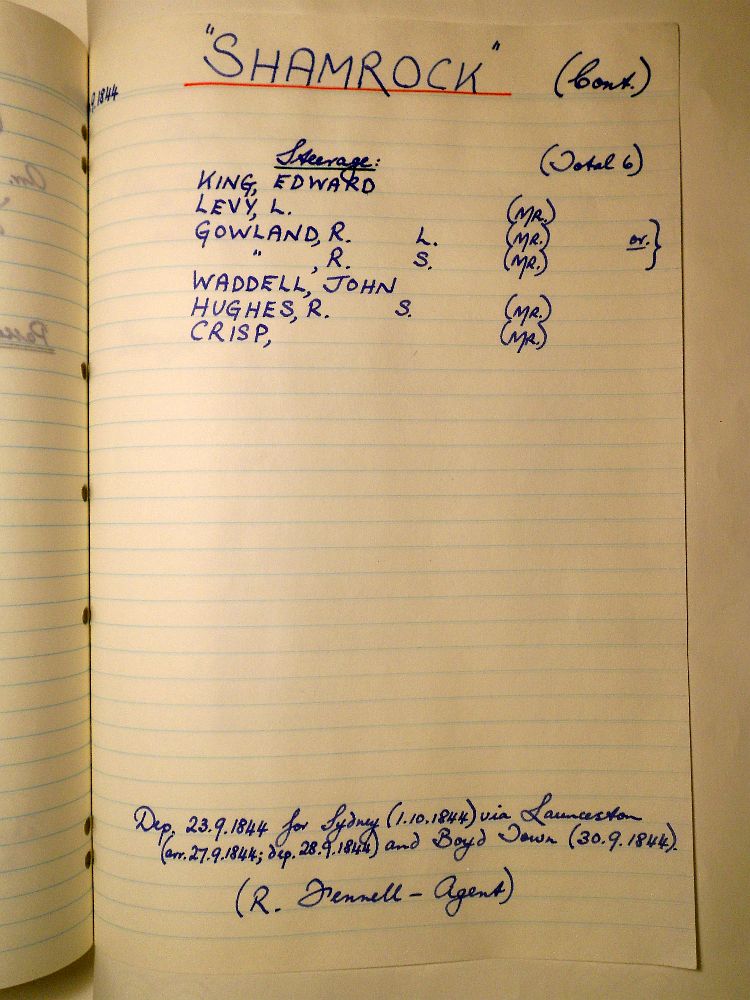 "SHAMROCK" (Cont.)
9.1844
Steerage: (Total 6)
KING, EDWARD
LEVY, L. (MR.)
GOWLAND, R. L. (MR.) or. }
" , R. S. (MR.)
WADDELL, JOHN
HUGHES, R. S. (MR.)
CRISP, (MR.)
Dep. 23.9.1844 for Sydney (1.10.1844) via Launceston
(arr. 27.9.1844; dep. 28.9.1844) and Boyd Town (30.9.1844).
(R. Fennell - Agent)